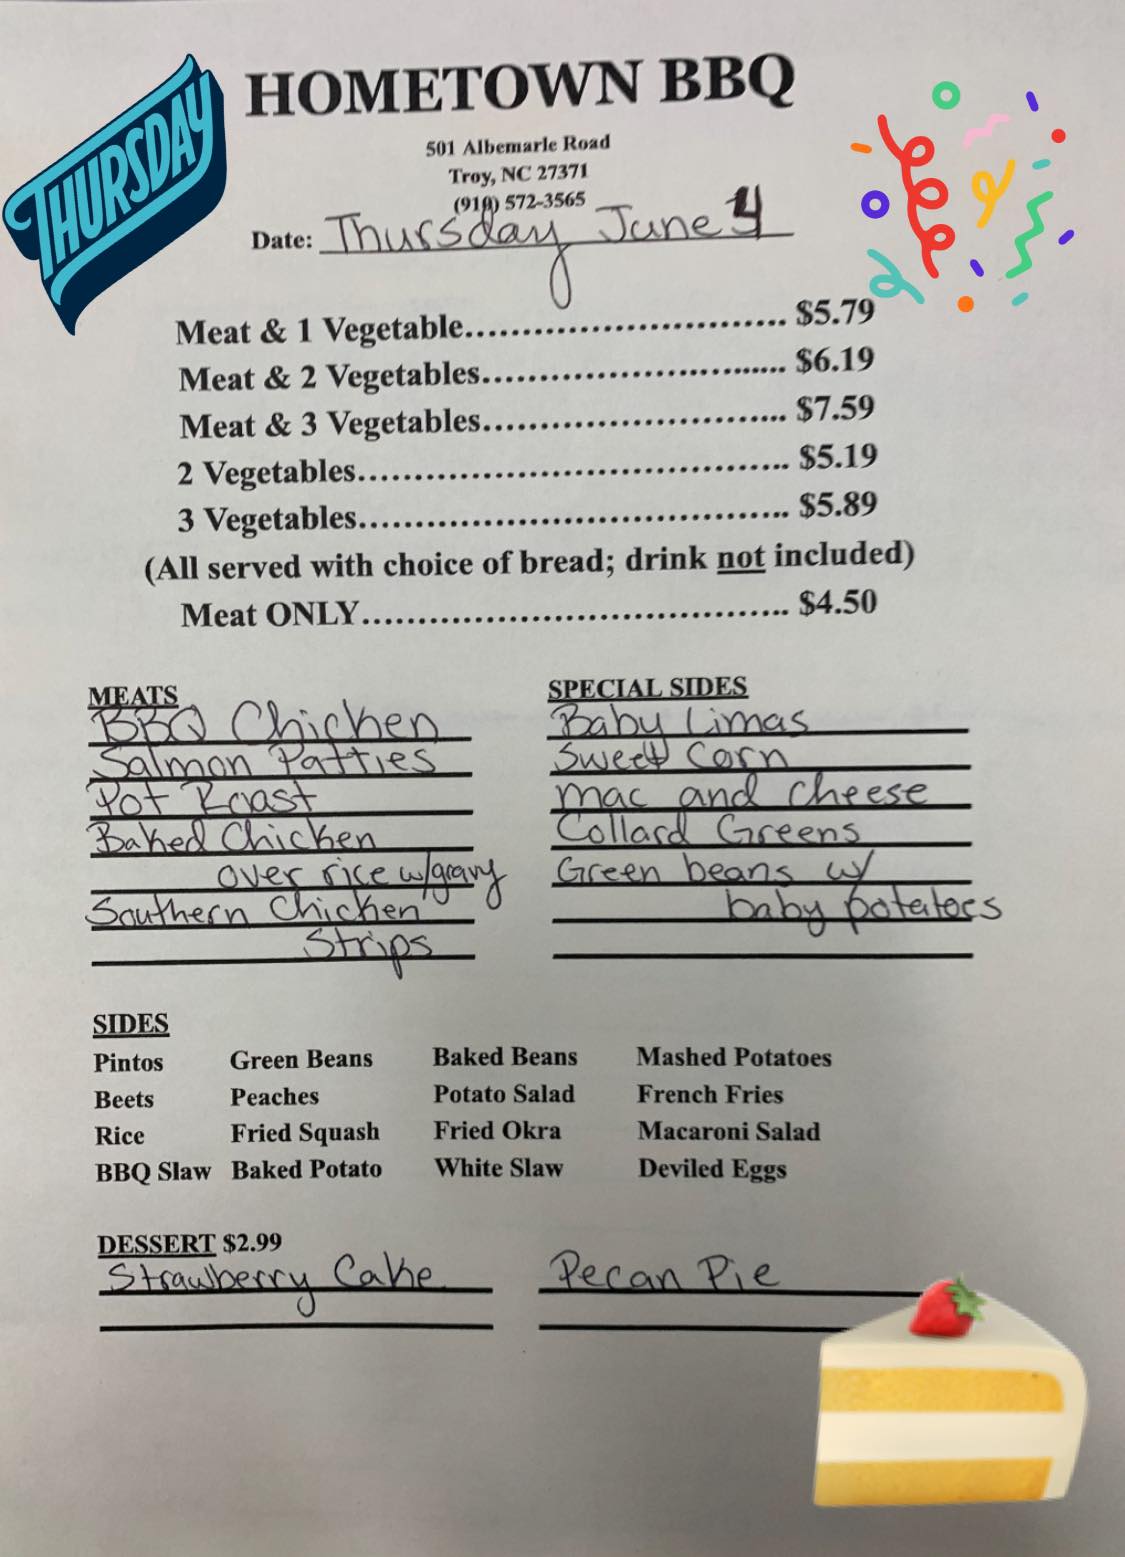 THURSDAY
HOMETOWN BBQ
501 Albemarle Road
Troy, NC 27371
(910) 572-3565
Date: Thursday June 4
Meat & 1 Vegetable.............................. $5.79
Meat & 2 Vegetables............................ $6.19
Meat & 3 Vegetables............................ $7.59
2 Vegetables....................................... $5.19
3 Vegetables....................................... $5.89
(All served with choice of bread; drink not included)
Meat ONLY....................................... $4.50
MEATS
BBQ Chicken
Salmon Patties
Pot Roast
Baked Chicken
over rice w/gravy
Southern Chicken
Strips
SPECIAL SIDES
Baby Limas
Sweet Corn
Mac and Cheese
Collard Greens
Green beans w/
baby potatoes
SIDES
Pintos Green Beans Baked Beans Mashed Potatoes
Beets Peaches Potato Salad French Fries
Rice Fried Squash Fried Okra Macaroni Salad
BBQ Slaw Baked Potato White Slaw Deviled Eggs
DESSERT $2.99
Strawberry Cake Pecan Pie